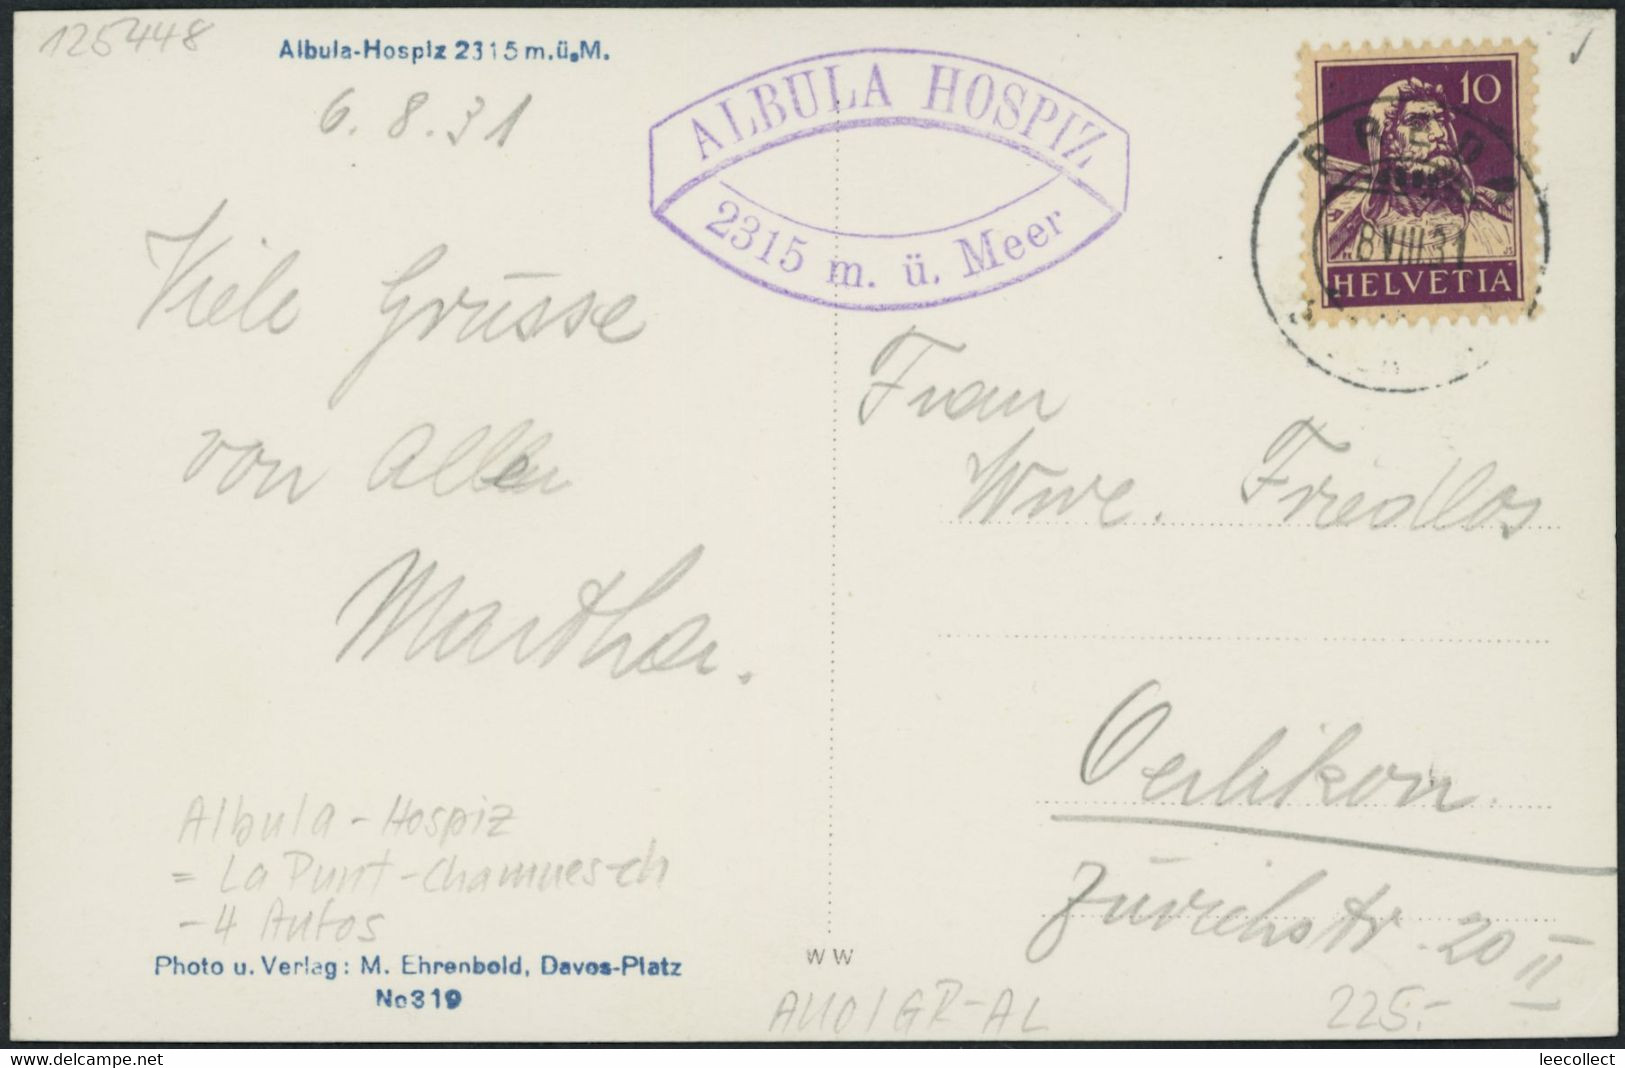 125448
Albula-Hospiz 2315 m.ü.M.
6.8.31
ALBULA HOSPIZ
2315 m. ü. Meer
10
PREDA
8 VIII 31
HELVETIA
Viele Grüsse
von Allen
Martha.
Frau
Wwe. Friedlos
Oerlikon.
Zürichstr. 20 II
Albula-Hospiz
= La Punt-Chamues-ch
- 4 Autos
Photo u. Verlag: M. Ehrenbold, Davos-Platz
No 319
WW
225.-
www.delcampe.net
leecollect